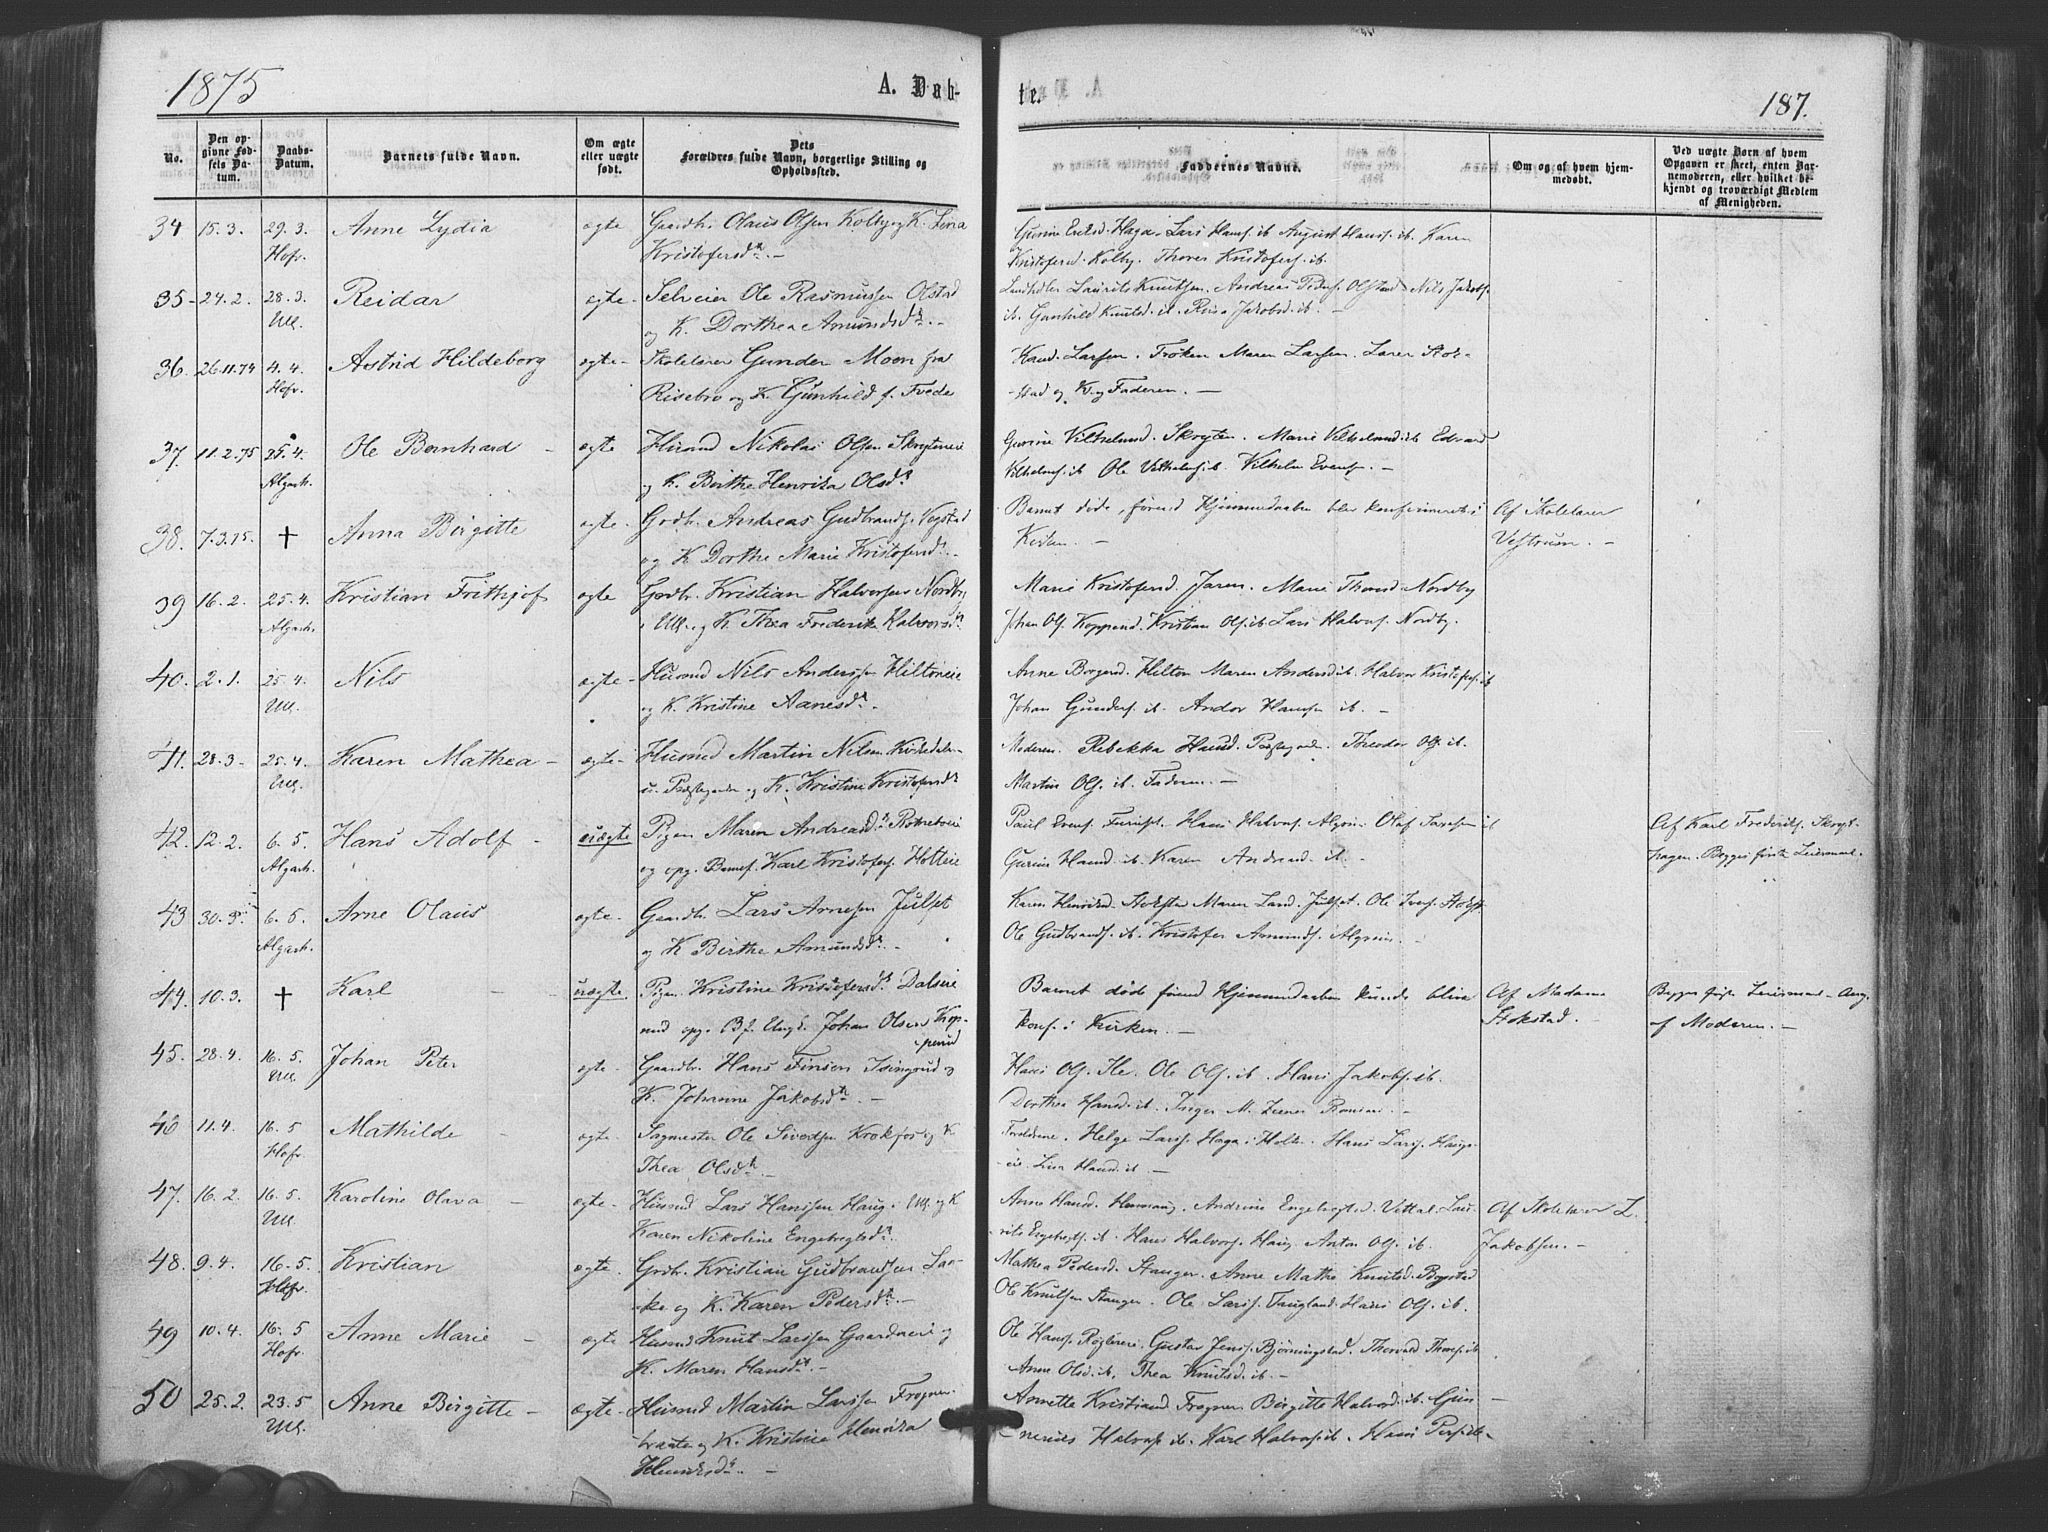 1875
A. Døb-
te.
187.
No.
Den op-
givne Fød-
sels Da-
tum.
Daabs-
Datum.
Barnets fulde Navn.
Om ægte
eller uægte
født.
Dets
Forældres fulde Navn, borgerlige Stilling og
Opholdssted.
Faddernes Navne.
Om og af hvem hjem-
medøbt.
Ved uægte Børn af hvem
Opgaven er skeet, enten Bar-
nemoderen, eller hvilket be-
kjendt og troværdigt Medlem
af Menigheden.
34 15.3. 29.3. Anne Lydia ægte Gaardbr. Olaus Olsen Kolby og K. Lina
Hofv. Kristofersdtr. —
Haga. Lars Hansf. ib August Hansf. ib. Karen
Kristofersd. Kolby. Thorer Kristofersf. ib
35 - 24.2. 28.3. Reidar ægte - Selveier Ole Rasmussen Olstad
Ull. og K. Dorthea Amundsdtr. —
Laurits Knutsen. Andreas Pedersf. Olstad. Nils Jakobsf.
ib. Gunhild Knutsd. ib. Jakobsd. ib. —
36. 26.11.74 4.4. Astrid Hildeborg ægte - Skolelærer Gunder Moen fra
Hofv. Risebro og K. Gunhild f. Tvede
Larsen. Frøken Maren Larsen. Lærer Stok-
stad og K. og Faderen. —
37. 11.2.75 25.4. Ole Bernhard - ægte Husmd Nikolai Olsen Skrytereie
Algarh. og K. Birthe Henrika Olsdtr
Gurine Vilhelmsd. Skryten. Marie Vilhelmsd. ib Edvard
Vilhelmsf. ib Ole Vilhelmsf. ib. Vilhelm Evensf. —
38. 7.3.75. † Anna Birgitte ægte - Grdbr. Andreas Gudbrandsf. Vegstad
og K. Dorthe Marie Kristofersdtr. —
Barnet døde, førend Hjemmedaaben blev konfirmeret i
Kirken. —
Af Skolelærer
Vestrum. —
39 16.2. 25.4. Kristian Frithjof ægte Grdbr. Kristian Halvorsen Nordby
Algarh. i Ull. og K. Thea Frederikke Halvorsdtr.
Marie Kristofersd. Jaren. Marie Thorsd. Nordby
Johan Olsf. Koppend. Kristian Olsf. ib. Lars Halvorsf. Nordby.
40. 2.1. 25.4. Nils ægte - Husmd Nils Andersen Hiltoneie
Ull. og K. Kristine Aanesdtr. —
Anne Borgersd. Hilton Maren Andersd. ib. Halvor Kristofersf. ib
Johan Gundersf. ib. Andor Hansen ib. —
41. 28.3 - 25.4. Karen Mathea - ægte - Husmd Martin Nilsen Kirkedalen
Ull. u. Præstegaarden og K. Kristine Kristofersdtr
Moderen. Rebekka Hansd. Præstegaarden. Theodor Olsf. ib.
Martin Olsf. ib. Faderen. —
42. 12.2. 6.5. Hans Adolf - uægte Pigen Maren Andreasdtr
Algarh. og opg. Barnef. Karl Kristofersf. Holteie
Paul Evensf. Hans Halvorsf. Algrim. Olaf ib
Gurine Hansd. ib. Karen Andreasd. ib. —
Af Karl Frederiksf. Skryt-
hagen. Begges første Leiermaal.
43 30.3. 6.5. Arne Olaus ægte - Gaardbr. Lars Arnesen Julset
Algarh. og K. Birthe Amundsdtr. —
Karen Henriksd. Maren Larsd. Julset. Ole Iversf.
Ole Gudbrandsf. ib. Kristofer Amundsf. Algrim. —
44. 10.3. † Karl - uægte Pigen Kristine Kristofersdtr. Dalseie
med opg. Bf. Ungk. Johan Olsen Kop-
perud
Barnet døde førend Hjemmedaaben kunde blive
konf. i Kirken. —
Af Madame
Stokstad. —
Begges første Leiermaal - Ang.
af Moderen. —
45. 28.4. 16.5. Johan Peter ægte. Gaardbr. Hans Finsen Isingrud og
Ull. K. Johanne Jakobsdtr. —
Hans Olsf. Ile. Ole Olsf. ib. Hans Jakobsf. ib.
Dorthea Hansd. ib. Inger M. —
46 11.4. 16.5 Mathilde - ægte - Sagmester Ole Sivertsen Krokfos og K
Hofv. Thea Olsdtr. —
Forældrene. Helge Larsf. Haga i Holter. Hans Larsf. Haga-
eie. Lina Hansd. ib. —
47. 16.2. 16.5. Karoline Olava - ægte - Husmd Lars Hanssen Haug i Ull. og K
Ull. Karen Nikoline Engebregtsdtr.
Anne Hansd. Andrine Engebregtsd. Vettal. Lau-
rits Engebregtsf. ib. Hans Halvorsf. Haug. Anton Olsf. ib.
Af Skolelærer L.
Jakobsen. —
48. 9.4. 16.5. Kristian ægte - Grdbr. Kristian Gudbrandsen Laa-
Hofv. ke og K. Karen Pedersdtr. —
Mathea Pedersd. Stanger. Anne Mathea Knutsd.
Ole Knutsen Stanger. Ole Larsf. Hans Olsf. ib.
49 10.4. 16.5 Anne Marie - ægte Husmd Knut Larssen Gaardereie og
Hofv. K. Maren Hansdtr. —
Ole Hansf. Gustav Jensf. Bjørningstad. Thorvald Thoresf. ib
Anne Olsd. ib. Thea Knutsd. ib. —
50 25.2. 23.5 Anne Birgitte - ægte - Husmd Martin Larssen Frogner-
Ull. braate og K. Kristine Henrika
Henriksdtr. —
Annette Kristiansd. Frogner. Birgitte Halvorsd. ib. Gun-
nerius Halvorsf. ib. Karl Halvorsf. ib. Hans Persf. ib -